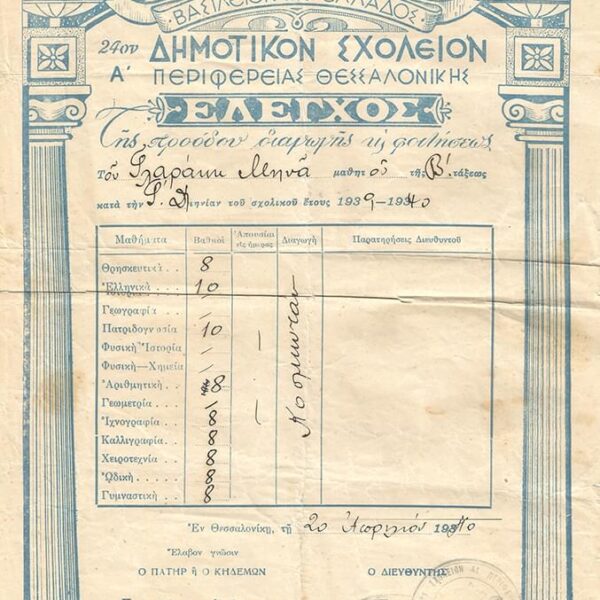 ΒΑΣΙΛΕΙΟΝ ΤΗΣ ΕΛΛΑΔΟΣ
24ον ΔΗΜΟΤΙΚΟΝ ΣΧΟΛΕΙΟΝ
Α΄ ΠΕΡΙΦΕΡΕΙΑΣ ΘΕΣΣΑΛΟΝΙΚΗΣ
ΕΛΕΓΧΟΣ
Τῆς προόδου διαγωγῆς κ φοιτήσεως
Τοῦ Μηνᾶ μαθητοῦ τῆς Β΄. τάξεως
κατὰ τὴν μηνίαν τοῦ σχολικοῦ ἔτους 1939-1940
Μαθήματα Βαθμοί Ἀπουσίαι εἰς ἡμέρας Διαγωγὴ Παρατηρήσεις Διευθυντοῦ
Θρησκευτικὰ . . 8
Ἑλληνικὰ . . . 10
Ἱστορία . . .
Γεωγραφία . . .
Πατριδογνωσία 10
Φυσικὴ Ἱστορία
Φυσικὴ—Χημεία
Ἀριθμητικὴ . . 8
Γεωμετρία . . .
Ἰχνογραφία . . 8
Καλλιγραφία . . 8
Χειροτεχνία . . 8
Ὠδικὴ . . . . 8
Γυμναστικὴ . . 8
Κοσμιωτάτη
Ἐν Θεσσαλονίκῃ, τῇ 20 Ἀπριλίου 1940
Ἔλαβον γνῶσιν
Ο ΠΑΤΗΡ ἢ Ο ΚΗΔΕΜΩΝ Ο ΔΙΕΥΘΥΝΤΗΣ